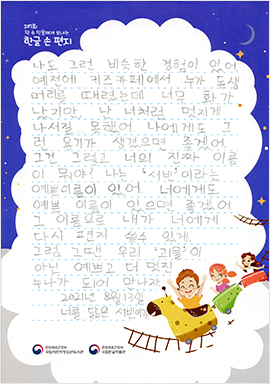 제1회
한글 손 편지
나도 그런 비슷한 경험이 있어
예전에 키즈카페에서 누가 동생
머리를 때렸는데 너무 화가
났지만, 난 너처럼 멋지게
나서질 못했어. 나에게도 그
런 용기가 생겼으면 좋겠어.
그건 그렇고 너의 진짜 이름
이 뭐야? 나는 '서빈'이라는
예쁜이름이 있어. 너에게도
예쁜 이름이 있으면 좋겠어
그 이름으로 내가 너에게
다시 편지 쓸수 있게.
그럼, 그땐 우리 '괴물'이
아닌 예쁘고 더 멋진
누나가 되어 만나자.
2021년 8월 13일
너를 닮은 서빈이가
문화체육관광부
국립어린이청소년도서관
문화체육관광부
국립한글박물관